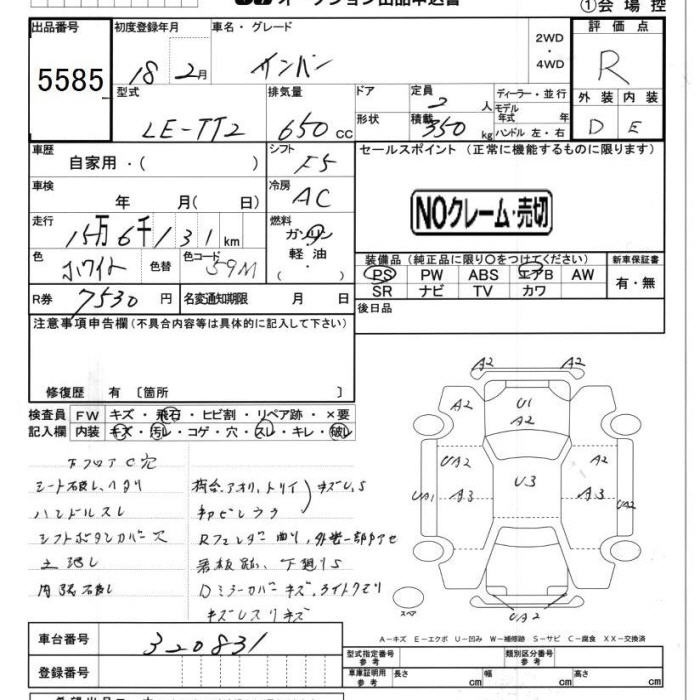 オークション出品申込書
①会場控
出品番号 5585
初度登録年月 18年 2月
車名・グレード サンバー
2WD・4WD
評価点 R
外装 D 内装 E
型式 LE-TT2
排気量 650cc
ドア 形状
定員 2人
積載 350kg
ディーラー・並行
モデル年式 年
ハンドル 左・右
車歴 自家用・( )
シフト F5
セールスポイント(正常に機能するものに限ります)
NOクレーム・売切
車検 年 月( 日)
冷房 AC
走行 15万6千131km
燃料 ガソリン 軽油 ( ・ )
色 ホワイト 色替 色コード 59M
装備品(純正品に限り〇をつけてください)
新車保証書
PS PW ABS エアB AW
有・無
SR ナビ TV カワ
R券 7530円
名変通知期限 月 日
後日品
注意事項申告欄(不具合内容等は具体的に記入して下さい)
修復歴 有 〔箇所 〕
検査員 FW キズ・飛石・ヒビ割・リペア跡・×要
記入欄 内装 キズ・汚レ・コゲ・穴・スレ・キレ・破レ
下フロアC穴
シート破レ、ヘタリ
ハンドルスレ
シフトボタンカバー欠
内張破レ
荷台、アオリ、トリイ キズU、S
Rフェンダー曲り、外装一部ツヤセ
看板跡、下廻りS
Dミラーカバーキズ、ライトクモリ
A2 A2
A2 U1 A2
A2
UA2 A2
UA1 A3 U3 A3 UA2
UA2
スペア
A-キズ E-エクボ U-凹み W-補修跡 S-サビ C-腐食 XX-交換済
車台番号 320831
型式指定番号 参考
類別区分番号 参考
登録番号
車庫証明用 参考
長さ cm 幅 cm 高さ cm